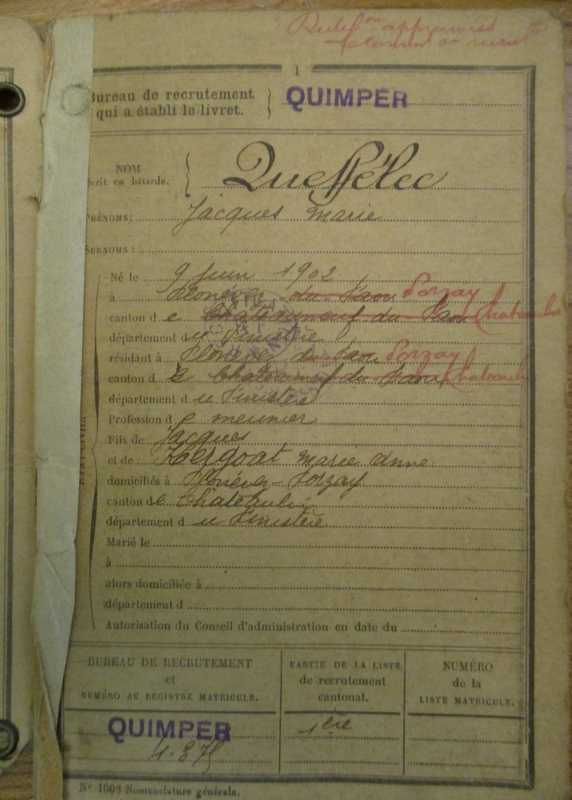 1
Bureau de recrutement
qui a établi le livret. } QUIMPER
NOM
écrit en bâtarde. } Queffélec
PRÉNOMS: Jacques Marie
SURNOMS:
Né le 9 Juin 1902
à Plonévez du Faou Porzay
canton de Chateauneuf du Faou Chateaulin
département du Finistère
résidant à Plonévez du Faou Porzay
canton de Chateauneuf du Faou Chateaulin
département du Finistère
Profession de meunier
Fils de Jacques
et de Kergoat Marie Anne
domiciliés à Plonévez-Porzay
canton de Chateaulin
département du Finistère
Marié le
à
alors domiciliée à
département d
Autorisation du Conseil d'administration en date du
BUREAU DE RECRUTEMENT
et
NUMÉRO AU REGISTRE MATRICULE.
PARTIE DE LA LISTE
de recrutement
cantonal.
NUMÉRO
de la
LISTE MATRICULE.
QUIMPER
1ère
N° 1008 Nomenclature générale.